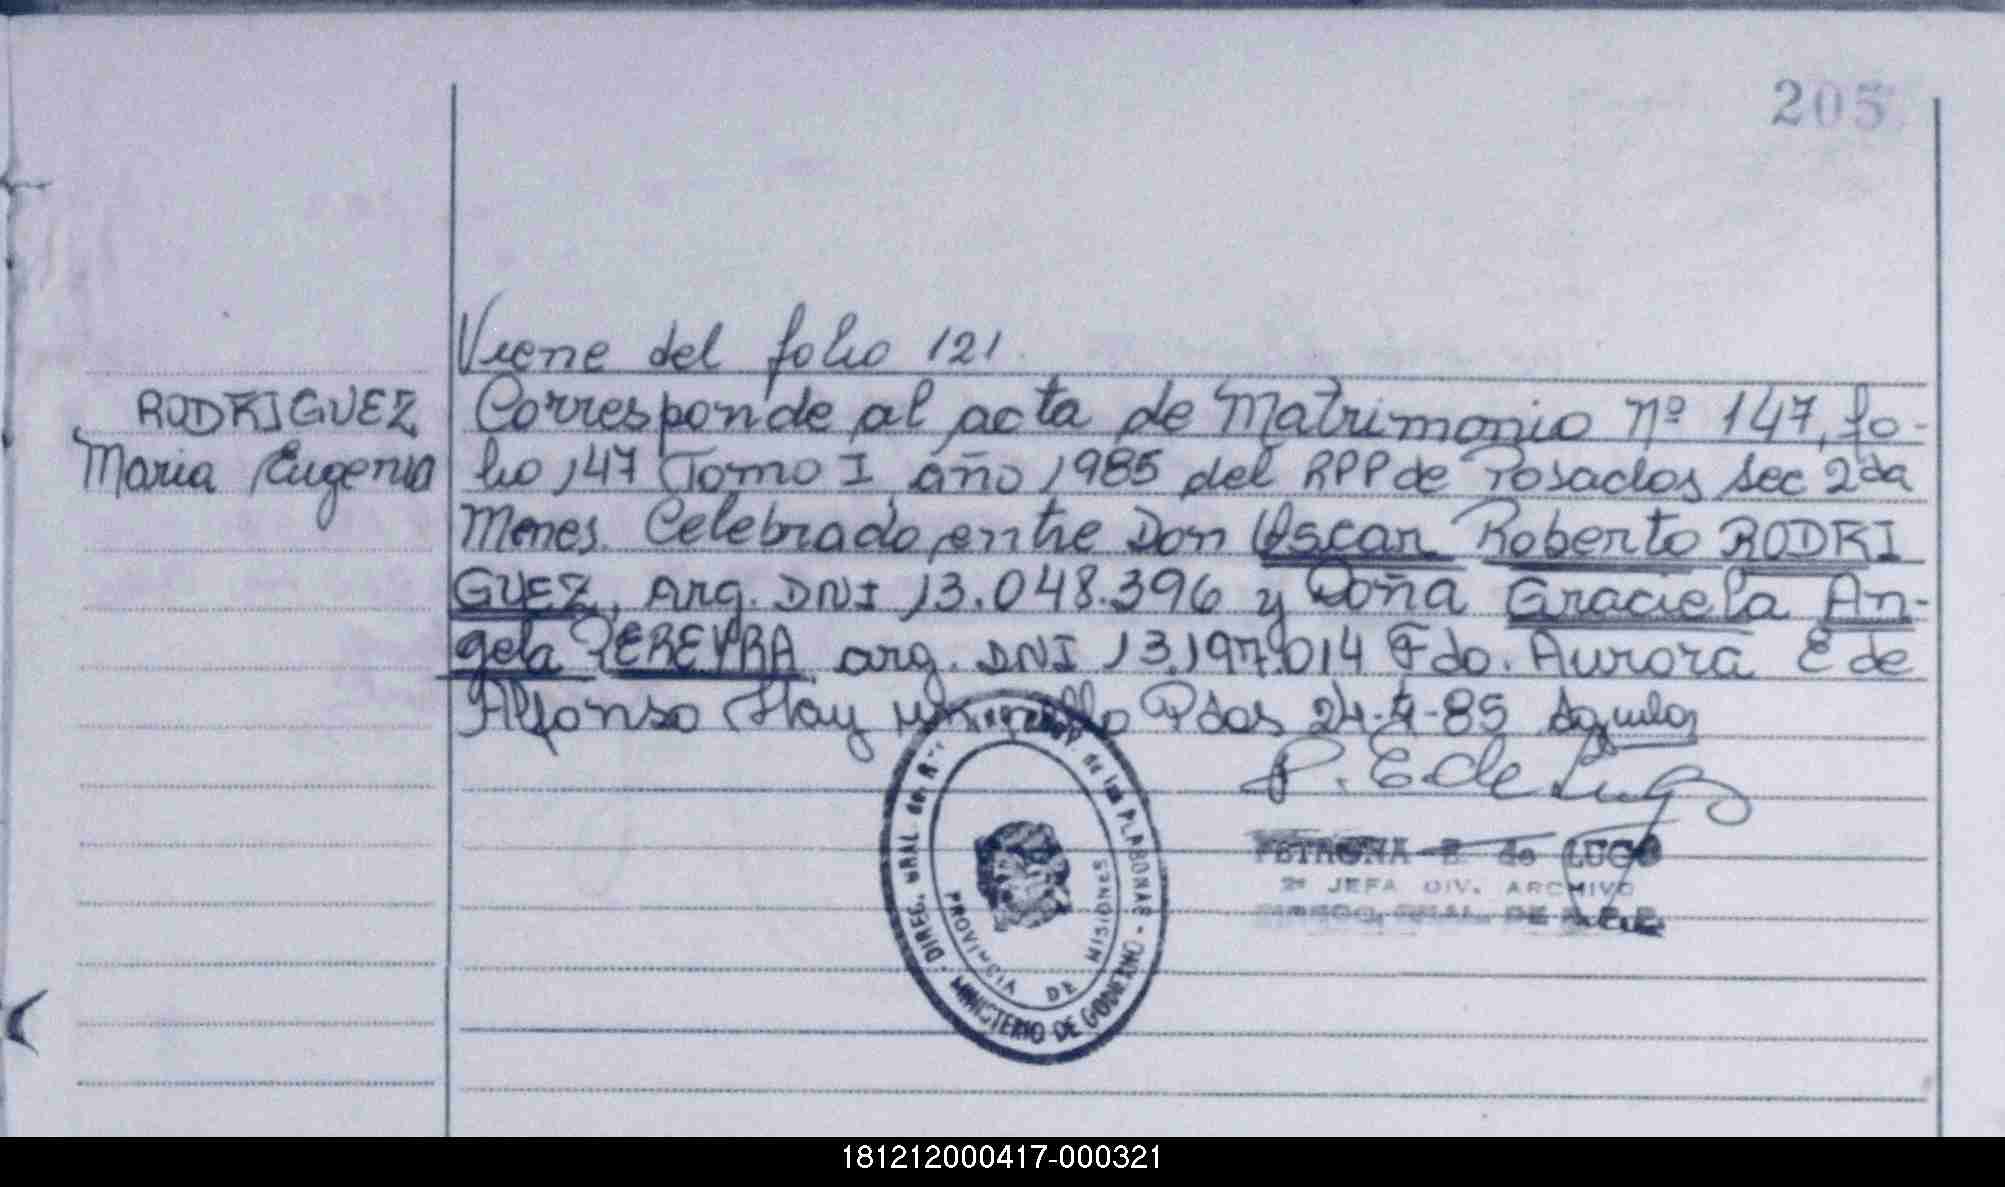 205
Viene del folio 121
RODRIGUEZ
Maria Eugenia
Corresponde al acta de Matrimonio Nº 147, fo-
lio 147 Tomo I año 1985 del RPP de Posadas Sec 2da
Mnes. Celebrado entre Don Oscar Roberto RODRI
GUEZ, Arg. DNI 13.048.396 y Doña Graciela An-
gela PEREYRA arg. DNI 13.197.014 Fdo. Aurora E de
Alfonso Hay un sello Pdas 24-
-85
P. E de Lugo
PETRONA E de LUGO
2º JEFA DIV. ARCHIVO
DIREC. GRAL. DE R.P.P.
DIREC. GRAL. del
de las PERSONAS
MINISTERIO DE GOBIERNO
PROVINCIA DE MISIONES
181212000417-000321